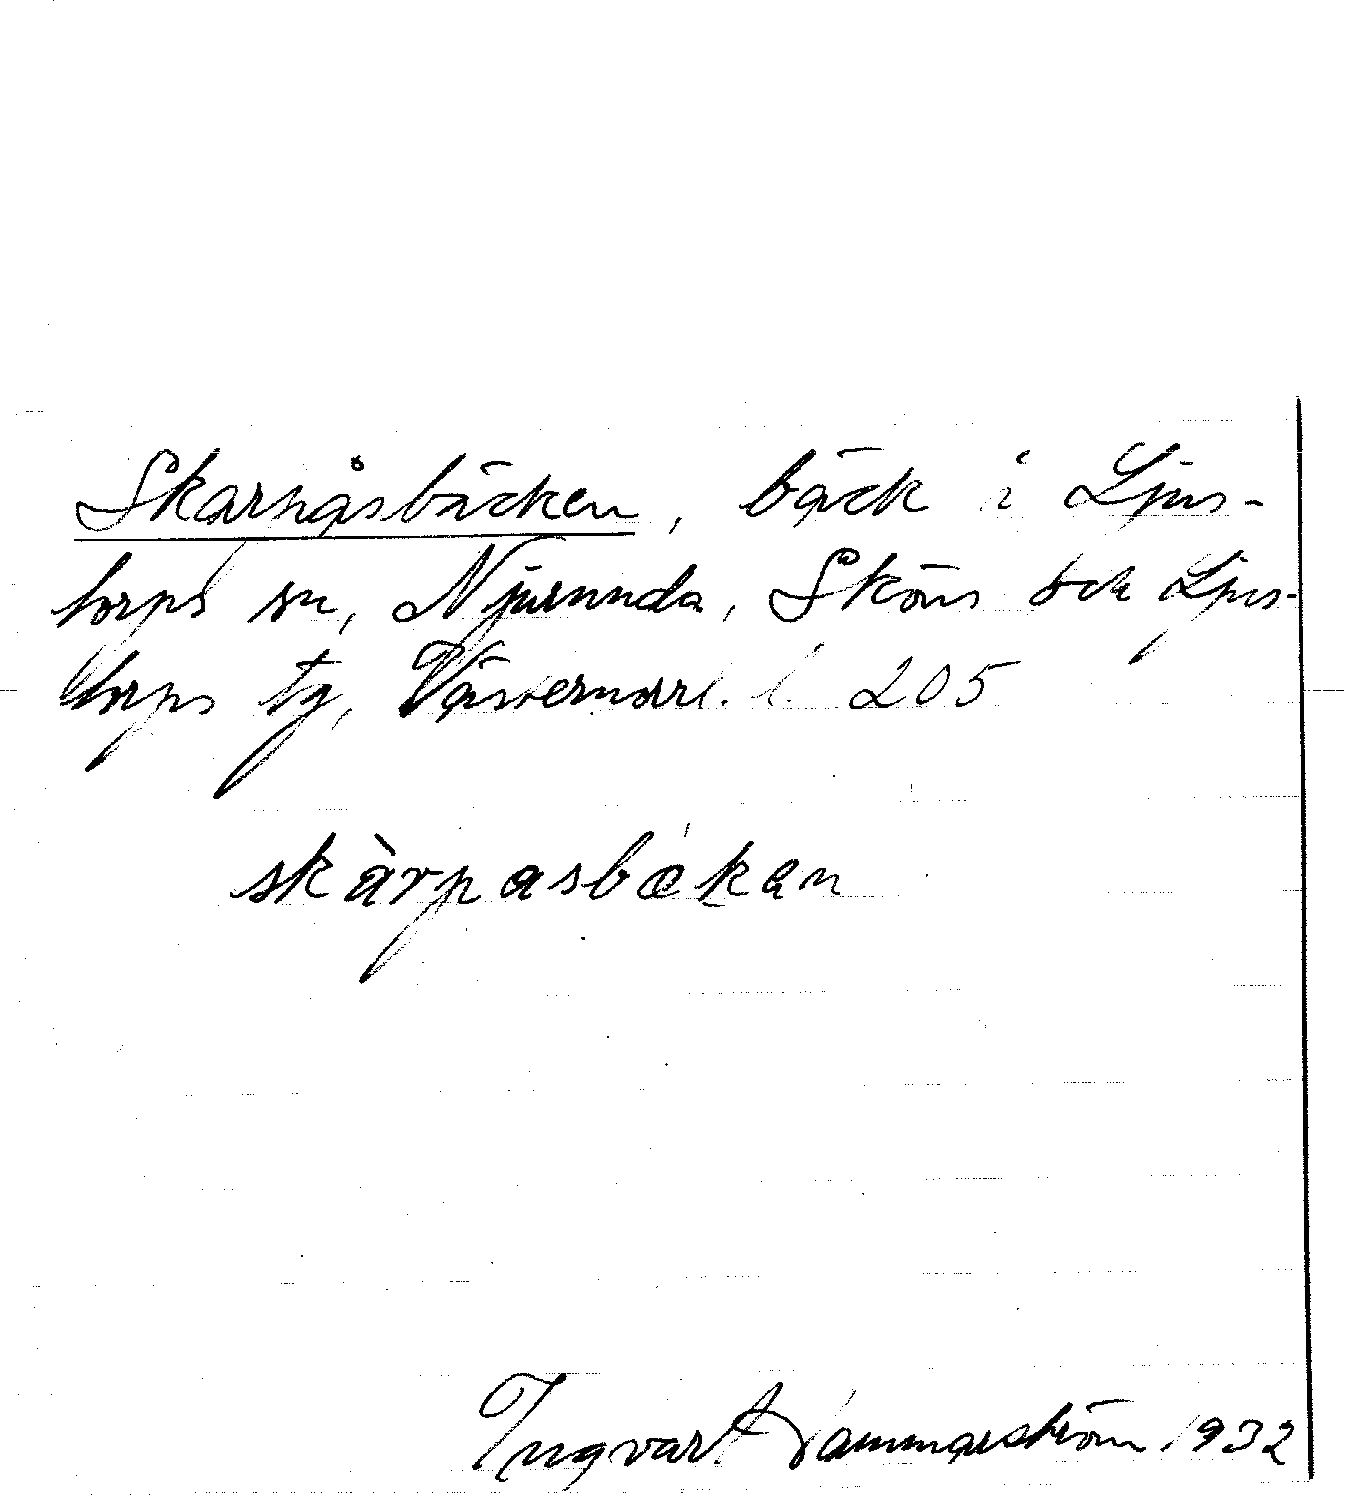 Skarnåsbäcken, bäck i Ljus-
torps sn, Njurunda, Sköns och Ljus-
torps tg, Västernorrl. l. 205
skàrpasbækan
Ingvar Hammarström 1932